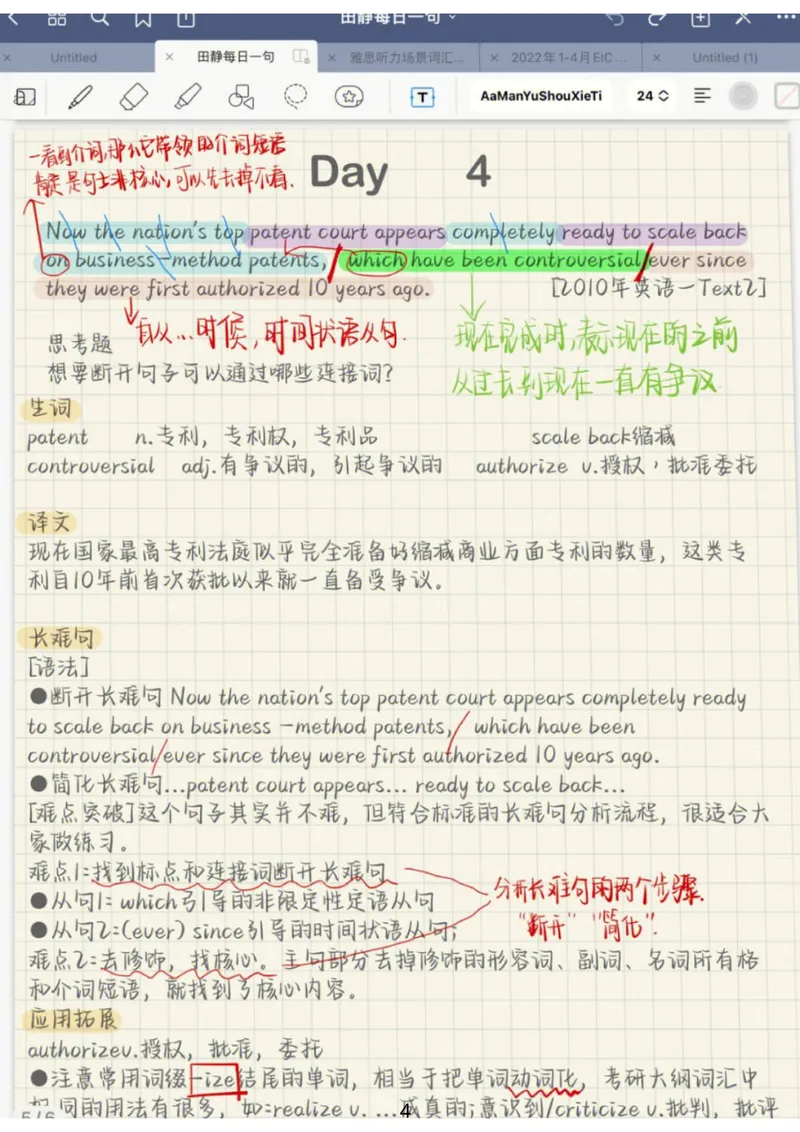 田静每日一句
Untitled
田静每日一句
雅思听力场景词汇...
2022年1-4月EIC...
Untitled (1)
AaManYuShouXieTi
24
一看到介词,那么它带领的介词短语
肯定是句主非核心,可以先去掉不看.
Day 4
Now the nation's top patent court appears completely ready to scale back
on business-method patents, which have been controversial ever since
they were first authorized 10 years ago.
[2010年英语一Text2]
自从...时候,时间状语从句.
现在完成时,表示现在的之前
从过去到现在一直有争议
思考题
想要断开句子可以通过哪些连接词?
生词
patent n.专利,专利权,专利品 scale back缩减
controversial adj.有争议的,引起争议的 authorize v.授权,批准委托
译文
现在国家最高专利法庭似乎完全准备好缩减商业方面专利的数量,这类专
利自10年前首次获批以来就一直备受争议。
长难句
[语法]
●断开长难句 Now the nation's top patent court appears completely ready
to scale back on business -method patents, which have been
controversial ever since they were first authorized 10 years ago.
●简化长难句...patent court appears... ready to scale back...
[难点突破]这个句子其实并不难,但符合标准的长难句分析流程,很适合大
家做练习。
难点1:找到标点和连接词断开长难句
●从句1: which引导的非限定性定语从句
●从句2:(ever) since引导的时间状语从句;
分析长难句的两个步骤.
"断开" "简化".
难点2:去修饰,找核心。主句部分去掉修饰的形容词、副词、名词所有格
和介词短语,就找到了核心内容。
应用拓展
authorizev.授权,批准,委托
●注意常用词缀-ize结尾的单词,相当于把单词动词化,考研大纲词汇中
同的用法有很多,如:realize v. ...成真的;意识到/criticize v.批判,批评
5/6
4